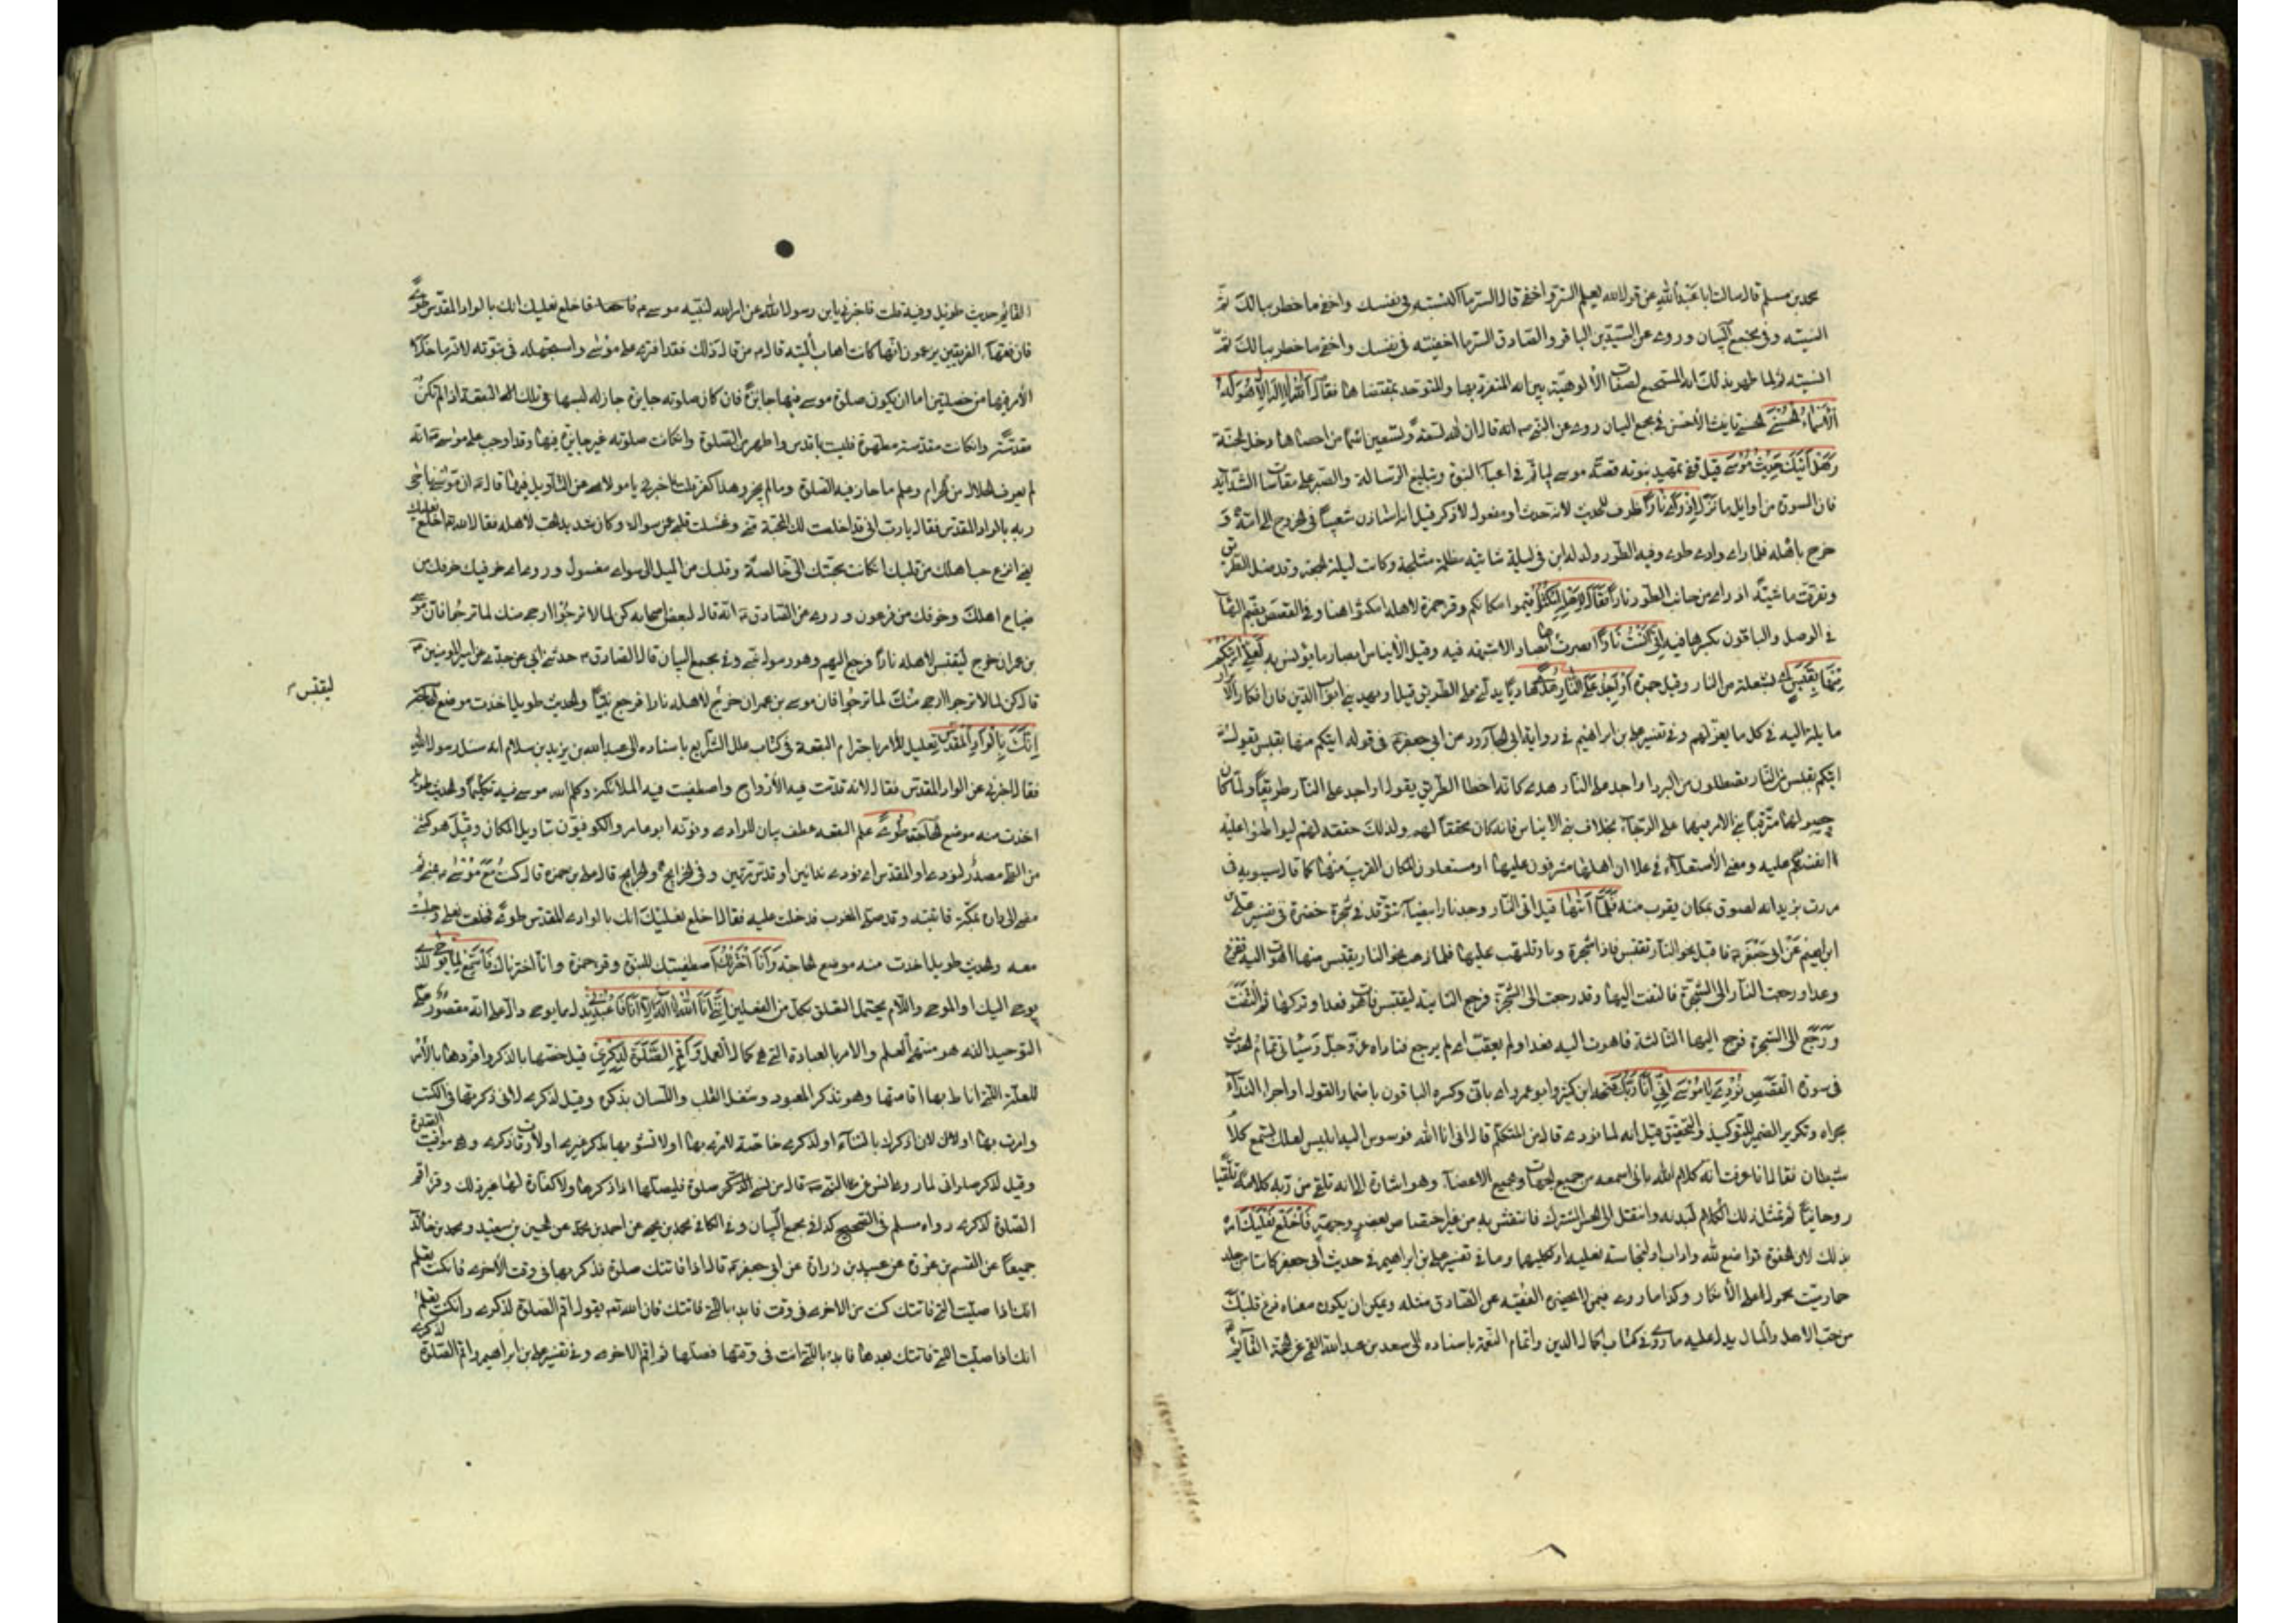 محمد بن مسلم قال سالت ابا عبد الله عن قول الله يعلم السر واخفى قال السر ما اكننته فى نفسك واخفى ما خطر ببالك ثم
انسيته وفى مجمع البيان وروى عن السيدين الباقر والصادق السر ما اخفيته فى نفسك واخفى ما خطر ببالك ثم
انسيته ولما ظهر بذلك انه المستجمع لصفات الألوهية بين انه المتفرد بها والمتوحد بمقتضاها فقال الله لا اله الا هو له
الأسماء الحسنى الحسنى تانيث الأحسن فى مجمع البيان روى عن النبى ص انه قال ان لله تسعة وتسعين اسما من احصاها دخل الجنة
وهل اتيك حديث موسى قيل قفى تمهيد نبوته قصة موسى ليأتم فى اعباء النبوة وتبليغ الرسالة والصبر على مقاساة الشدايد
فان السورة من اوايل ما نزل اذ رأى نارا ظرف للحديث لانه حدث او مفعول لأذكر قيل انه استاذن شعيبا فى الخروج الى امه و
خرج باهله فلما راى وادى طوى وفيه الطور ولد له ابن فى ليلة شاتية مظلمة مثلجة وكانت ليلة الجمعة وقد ضل الطريق
وتفرقت ماشيته اذ راى من جانب الطور نارا فقال لاهله امكثوا اقيموا مكانكم وقر حمزة لاهله امكثوا هنا وفى القصص بضم الهاء
فى الوصل والباقون بكسرها فيه انى انست نارا ابصرتها ابصارا لا شبهة فيه وقيل الأيناس ابصار ما يؤنس به لعلى اتيكم
منها بقبس بشعلة من النار وقيل جمرة او اجد على النار هدى هاديا يدلنى على الطريق قيل او يهدينى ابواب الدين فان افكار الأبرار
مايلة اليه فى كل ما يعن لهم وفى تفسير على بن ابراهيم فى رواية ابى الجارود عن ابى جعفر فى قوله اتيكم منها بقبس يقول
اتيكم بقبس من النار تصطلون من البرد او اجد على النار هدى كان قد اخطا الطريق يقول او اجد على النار طريقا ولما كان
حصولهما مترقبا بنى الامر فيهما على الرجاء بخلاف بنى الايناس فانه كان محققا لهم ولذلك حققه لهم ليوطنوا عليه
انفسهم عليه ومعنى الأستعلاء فى على ان اهلها مشرفون عليها او مستعلون المكان القريب منها كما قال سيبويه فى
مررت بزيد انه لصوق بمكان يقرب منه فلما اتيها قيل اتى النار وجد نارا بيضاء تتوقد فى شجرة خضرة فى تفسير على بن
ابراهيم عن ابى جعفر فاقبل نحو النار يقتبس فاذا شجرة ونار تلتهب عليها فلما ذهب نحو النار يقتبس منها اهوت اليه ففزع
وعدا ورجعت النار الى الشجرة فالتفت اليها وقد رجعت الى الشجرة فرجع الثانية ليقتبس فاهوت فعدا وتركها ثم التفت
ورجع الى الشجرة فرجع اليها الثالثة فاهوت اليه فعدا ولم يعقب اى لم يرجع فناداه عز وجل وسياتى تمام الحديث
فى سورة القصص نودى يا موسى انى انا ربك فتحه ابن كثير وابو عمرو اى بانى وكسره الباقون باضمار القول او اجراء النداء
مجراه وتكرير الضمير للتوكيد والتحقيق قيل انه لما نودى قال من المتكلم قال انى انا الله فوسوس اليه ابليس لعلك تسمع كلام
شيطان فقال انا عرفت انه كلام الله بانى اسمعه من جميع الجهات وبجميع الاعضاء وهو اشارة الى انه تلقى من ربه كلامه تلقيا
روحانيا ثم تمثل ذلك الكلام لبدنه وانتقل الى الحس المشترك فانتقش به من غير اختصاص بعضو وجهة فاخلع نعليك امره
بذلك لان الحفوة تواضع لله واداب او لنجاسة نعليه او كليهما وما فى تفسير على بن ابراهيم فى حديث ابى جعفر كانتا من جلد
حمار ميت محول على الأنكار وكذا ما روى فيمن لا يحضره الفقيه عن الصادق مثله ويمكن ان يكون معناه فرغ قلبك
من حب الاهل والمال يدل عليه ما روى فى كتاب اكمال الدين واتمام النعمة باسناده الى سعد بن عبد الله القمى عن الحجة القايم
القايم حديث طويل وفيه قلت فاخبرنى يا بن رسول الله عن امر الله لنبيه موسى فاخلع نعليك انك بالواد المقدس طوى
فان فقهاء الفريقين يزعون انها كانت اهاب الميتة قال من قال ذلك فقد افترى على موسى واستجهله فى نبوته لانه ما خلا
الأمر فيها من خصلتين اما ان يكون صلوة موسى فيها جايزة فان كان صلوته جايزة جاز له لبسها فى تلك البقعة اذ لم تكن
مقدسة وانكانت مقدسة مطهرة فليست باقدس واطهر من الصلوة وانكانت صلوته غير جايزة فيها وقد اوجب على موسى انه
لم يعرف الحلال من الحرام وعلم ما جاز فيه الصلوة وما لم يجز وهذا كفر قلت فاخبرنى يا مولاى عن التأويل فيها قال ان موسى ناجى
ربه بالواد المقدس فقال يا رب انى قد اخلصت لك المحبة منى وغسلت قلبى عن سواك وكان شديد الحب لأهله فقال الله اخلع نعليك
اى انزع حب اهلك من قلبك انكانت محبتك الى خالصة وقلبك من الميل الى سواى مغسول وروى اى خوفيك خوفك من
ضياع اهلك وخوفك من فرعون وروى عن الصادق انه قال لبعض اصحابه كن لما لا ترجوا ارجى منك لما ترجوا فان موسى
بن عمران خرج ليقتبس لاهله نارا فرجع اليهم وهو رسول نبى وفى مجمع البيان قال الصادق حدثنى ابى عن جدى عن امير المومنين
قال كن لما لا ترجوا ارجى منك لما ترجوا فان موسى بن عمران خرج لاهله نارا فرجع نبيا والحديث طويل اخذت موضع الحاجة
ليقتبس
انك بالواد المقدس تعليل للامر باحترام البقعة فى كتاب علل الشرايع باسناده الى عبد الله بن يزيد بن سلام انه سئل رسول الله
فقال اخبرنى عن الواد المقدس فقال لانه قدست فيه الأرواح واصطفيت فيه الملائكة وكلم الله موسى فيه تكليما والحديث طويل
اخذت منه موضع الحاجة طوى علم البقعة عطف بيان للوادى ونونه ابو عامر والكوفيون بتاويل المكان وقيل هو كثنى
من الطى مصدر لنودى او المقدس اى نودى ندائين او قدس مرتين وفى الخرايج والجرايح قال على بن حمزة قال كنت مع موسى بمنى ثم
مضى الى دار بمكة فاتيته وقد صلى المغرب فدخلت عليه فقال اخلع نعليك انك بالوادى المقدس طوى فخلعت نعلى وجلست
معه والحديث طويل اخذت منه موضع الحاجة وانا اخترتك اصطفيتك للنبوة وقر حمزة وانا اخترناك فاستمع لما يوحى للذى
يوحى اليك او للوحى واللام يحتمل التعلق بكل من الفعلين اننى انا الله لا اله الا انا فاعبدنى بدل مما يوحى دال على انه مقصور على
التوحيد الذى هو منتهى العلم والامر بالعبادة التى هى كمال العمل واقم الصلوة لذكرى قيل خصها بالذكر وافردها بالأمر
للعلة التى اناط بها اقامتها وهو تذكر المعبود وشغل القلب واللسان بذكره وقيل لذكرى لانى ذكرتها فى الكتب
وامرت بها او لان اذكرك بالثناء او لذكرى خاصة لا ترائى بها او لا تشوبها بذكر غيرى او لأوقات ذكرى وهى مواقيت الصلوة
وقيل لذكر صلوتى لما روى عن النبى قال من نسى صلوة فليصلها اذا ذكرها ولا كفارة لها غير ذلك وقرا اقم
الصلوة لذكرى رواه مسلم فى الصحيح كذا فى مجمع البيان وفى الكافى محمد بن يحيى عن احمد بن محمد عن الحسين بن سعيد ومحمد بن خالد
جميعا عن القسم بن عروة عن عبيد بن زرارة عن ابى جعفر قال اذا فاتتك صلوة فذكرتها فى وقت الأخرى فان كنت تعلم
انك اذا صليت التى فاتتك كنت من الاخرى فى وقت فابدء بالتى فاتتك فان الله يقول اقم الصلوة لذكرى وانكنت تعلم
انك اذا صليت التى فاتتك بعدها فابدء بالتى انت فى وقتها فصلها ثم اقم الاخرى وفى تفسير على بن ابراهيم واقم الصلوة لذكرى